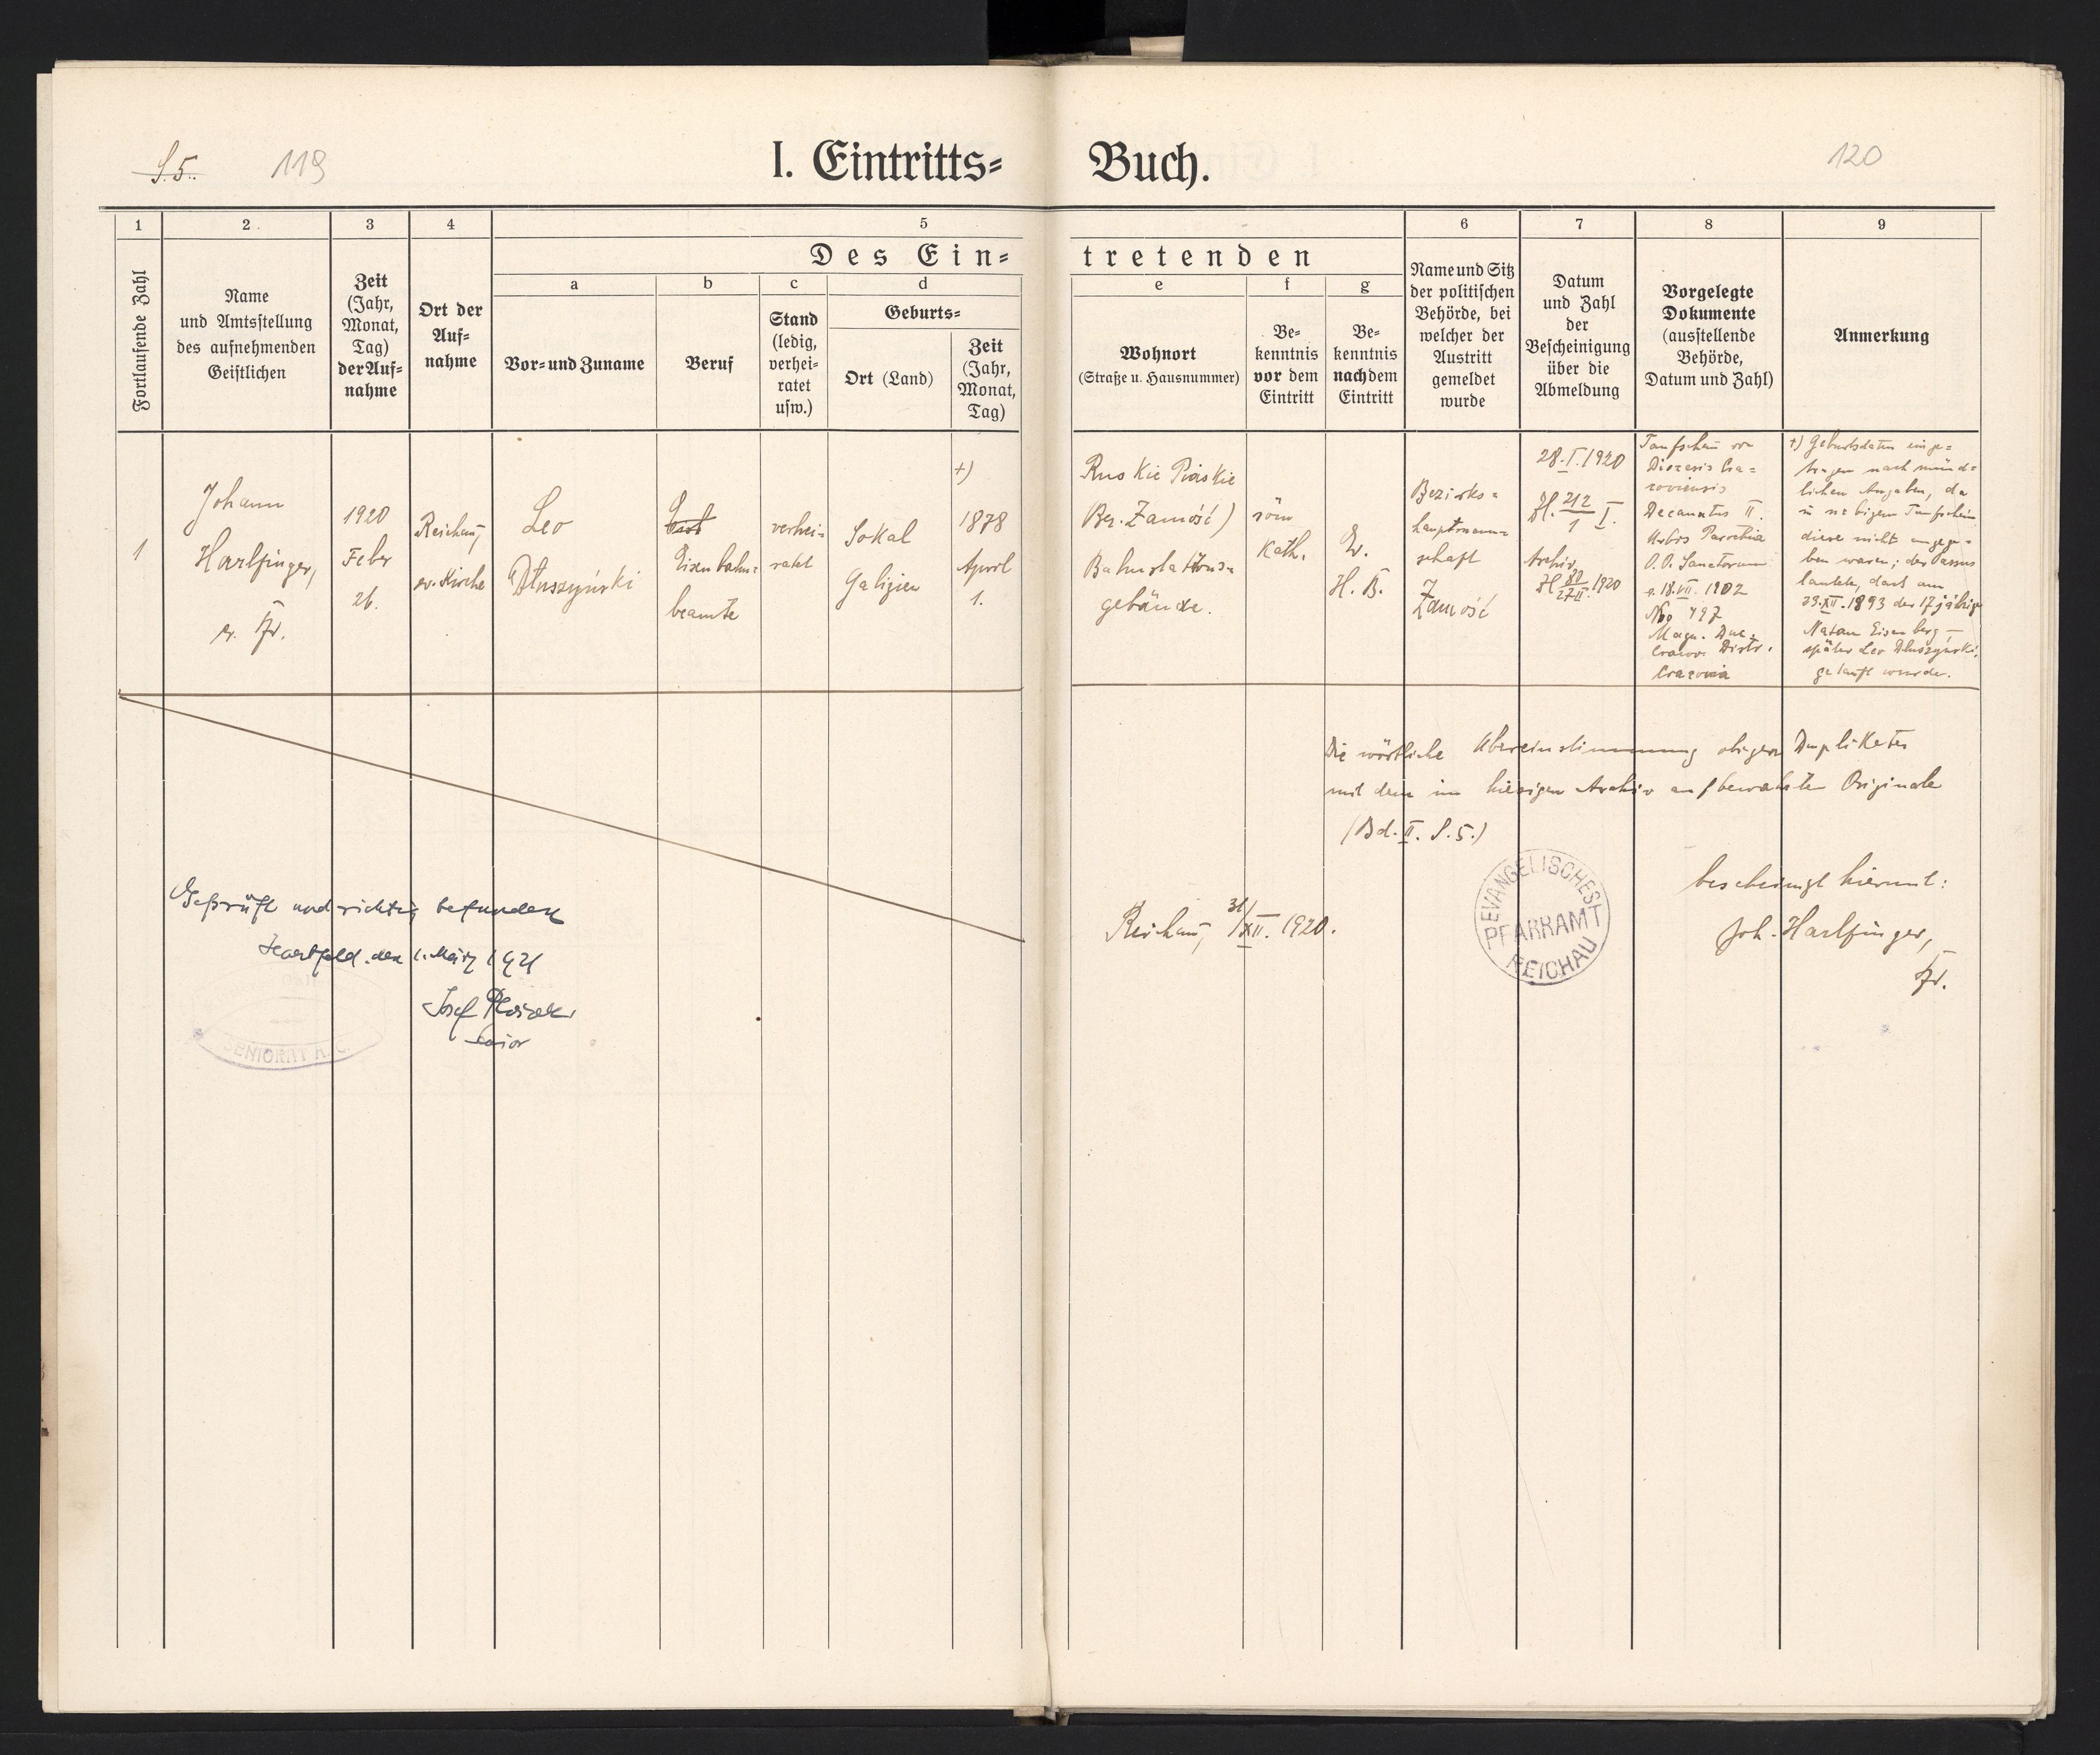 S. 5.
119
I. Eintritts-Buch.
120
1
2
3
4
5
6
7
8
9
Des Ein-tretenden
a
b
c
d
e
f
g
Fortlaufende Zahl
Name
und Amtsstellung
des aufnehmenden
Geistlichen
Zeit
(Jahr,
Monat,
Tag)
der Auf-
nahme
Ort der
Auf-
nahme
Vor- und Zuname
Beruf
Stand
(ledig,
verhei-
ratet
usw.)
Geburts-
Ort (Land)
Zeit
(Jahr,
Monat,
Tag)
Wohnort
(Straße u. Hausnummer)
Be-
kenntnis
vor dem
Eintritt
Be-
kenntnis
nach dem
Eintritt
Name und Sitz
der politischen
Behörde, bei
welcher der
Austritt
gemeldet
wurde
Datum
und Zahl
der
Bescheinigung
über die
Abmeldung
Vorgelegte
Dokumente
(ausstellende
Behörde,
Datum und Zahl)
Anmerkung
1
Johann
Harlfinger,
e. Pfr.
1920
Feber
26.
Reichau,
ev. Kirche
Leo
Dłuszyński
Eisenbahn-
beamte
verhei-
ratet
Sokal
Galizien
+)
1878
April
1.
Ruskie Piaskie
(Bez. Zamość)
Bahnstations-
gebäude.
röm
kath.
Ev.
H. B.
Bezirks-
hauptmann-
schaft
Zamość
28. I. 1920
Zl. 212/1 I.
Archiv
Zl 80/27 II. 1920
Taufschein
Diozesis Cra-
coviensis
Decanatus II.
Urbis Parochia
O.O. Sanctorum
18. VII. 1902
No 497
Magn. Duc.
Cracov. Distr.
Cracovia
+) Geburtsdaten einge-
tragen nach münd-
lichen Angaben, da
in obigem Taufschein
diese nicht angege-
ben waren; der Passus
lautete, dass am
23. XII. 1893 der 17 jährige
Natan Eisenberg -
später Leo Dłuszyński,
getauft wurde.
Die wörtliche Übereinstimmung obigen Duplikates
mit dem im hiesigen Archiv aufbewahrten Originale
(Bd. II. S. 5.)
bescheinigt hiermit:
Reichau, 31/XII. 1920.
EVANGELISCHES
PFARRAMT
REICHAU
Joh. Harlfinger,
Pfr.
Geprüft und richtig befunden
Hartfeld, den 1. März 1921
Josef
Senior
SENIORAT A. C.